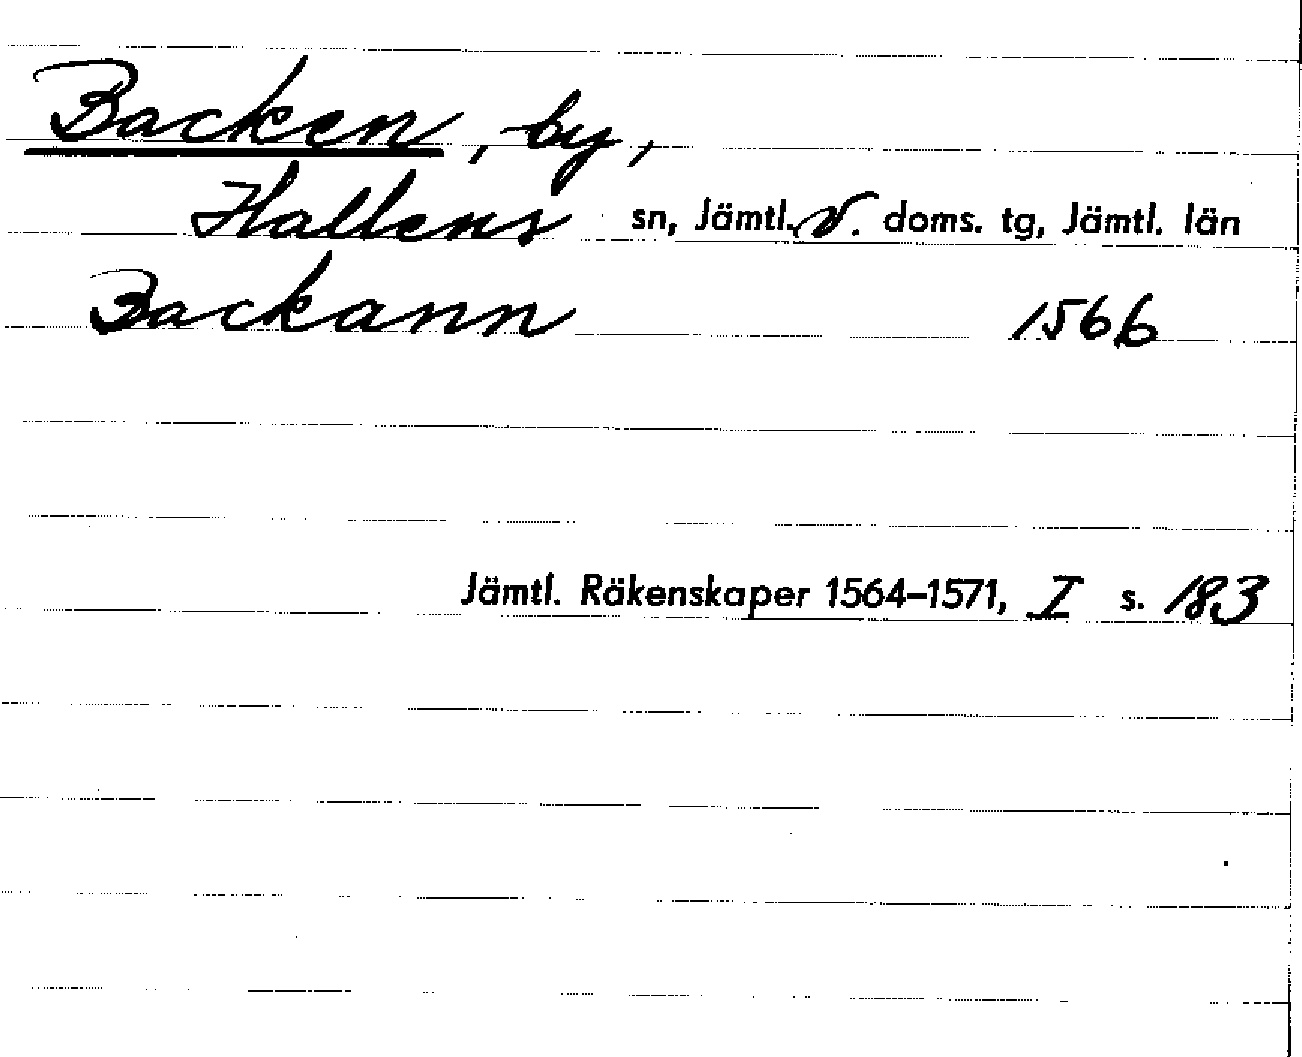 Backen, by,
Hallens sn, Jämtl. v. doms. tg, Jämtl. län
Backann 1566
Jämtl. Räkenskaper 1564–1571, I s. 183